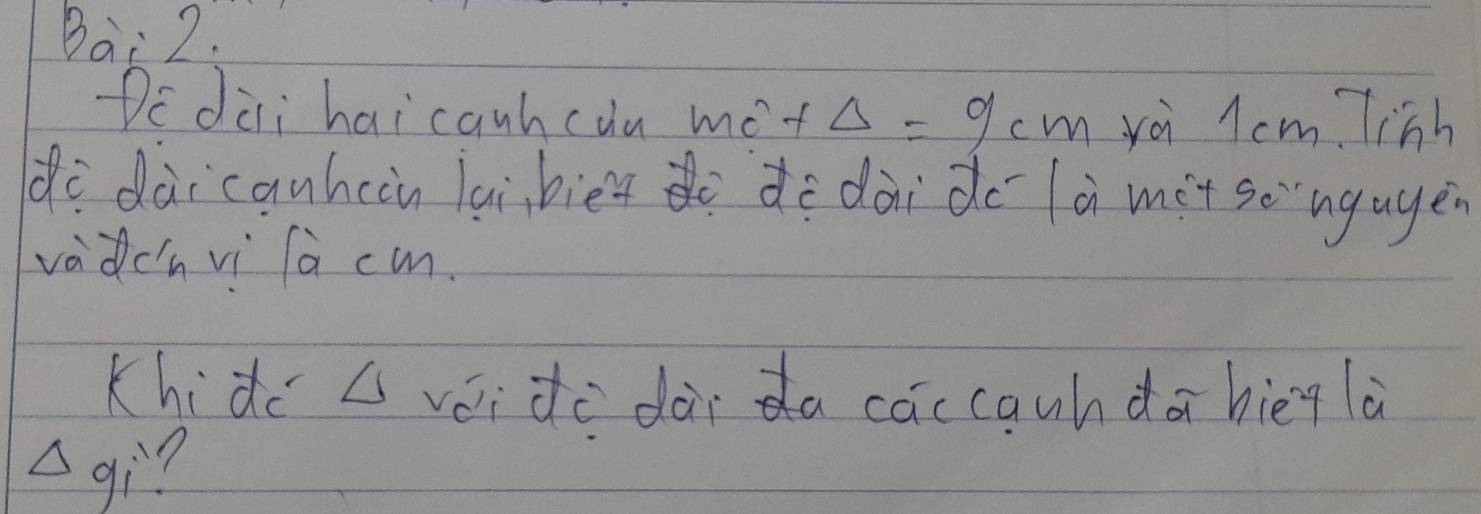 Bài 2.
Độ dài hai cạnh của một Δ = 9cm và 1cm. Tính
độ dài cạnh còn lại, biết độ độ dài đó là một số nguyên
và đơn vị là cm.
Khi đó Δ với độ dài đa các cạnh đã biết là
Δ gì?